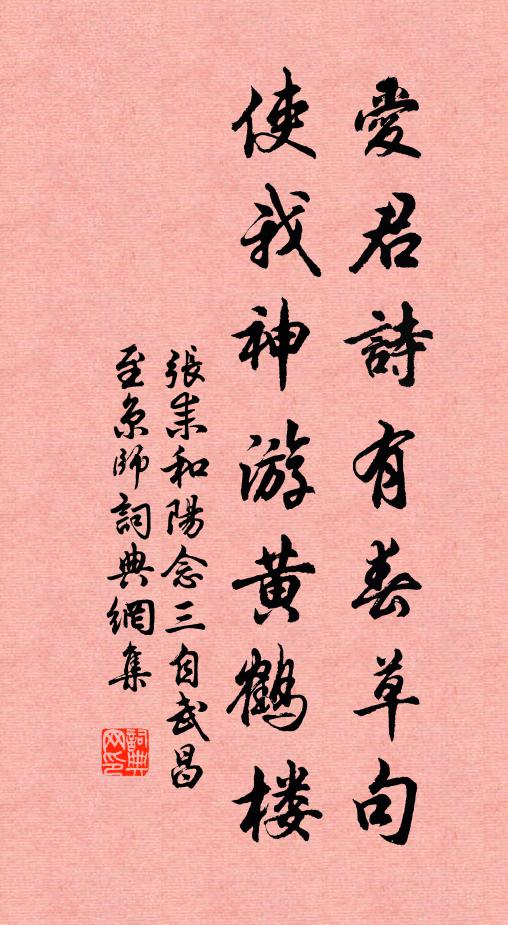 愛君詩有春草句
使我神游黄鶴楼
張耒和陽念三自武昌
至京師詞典網集
詞典
网印